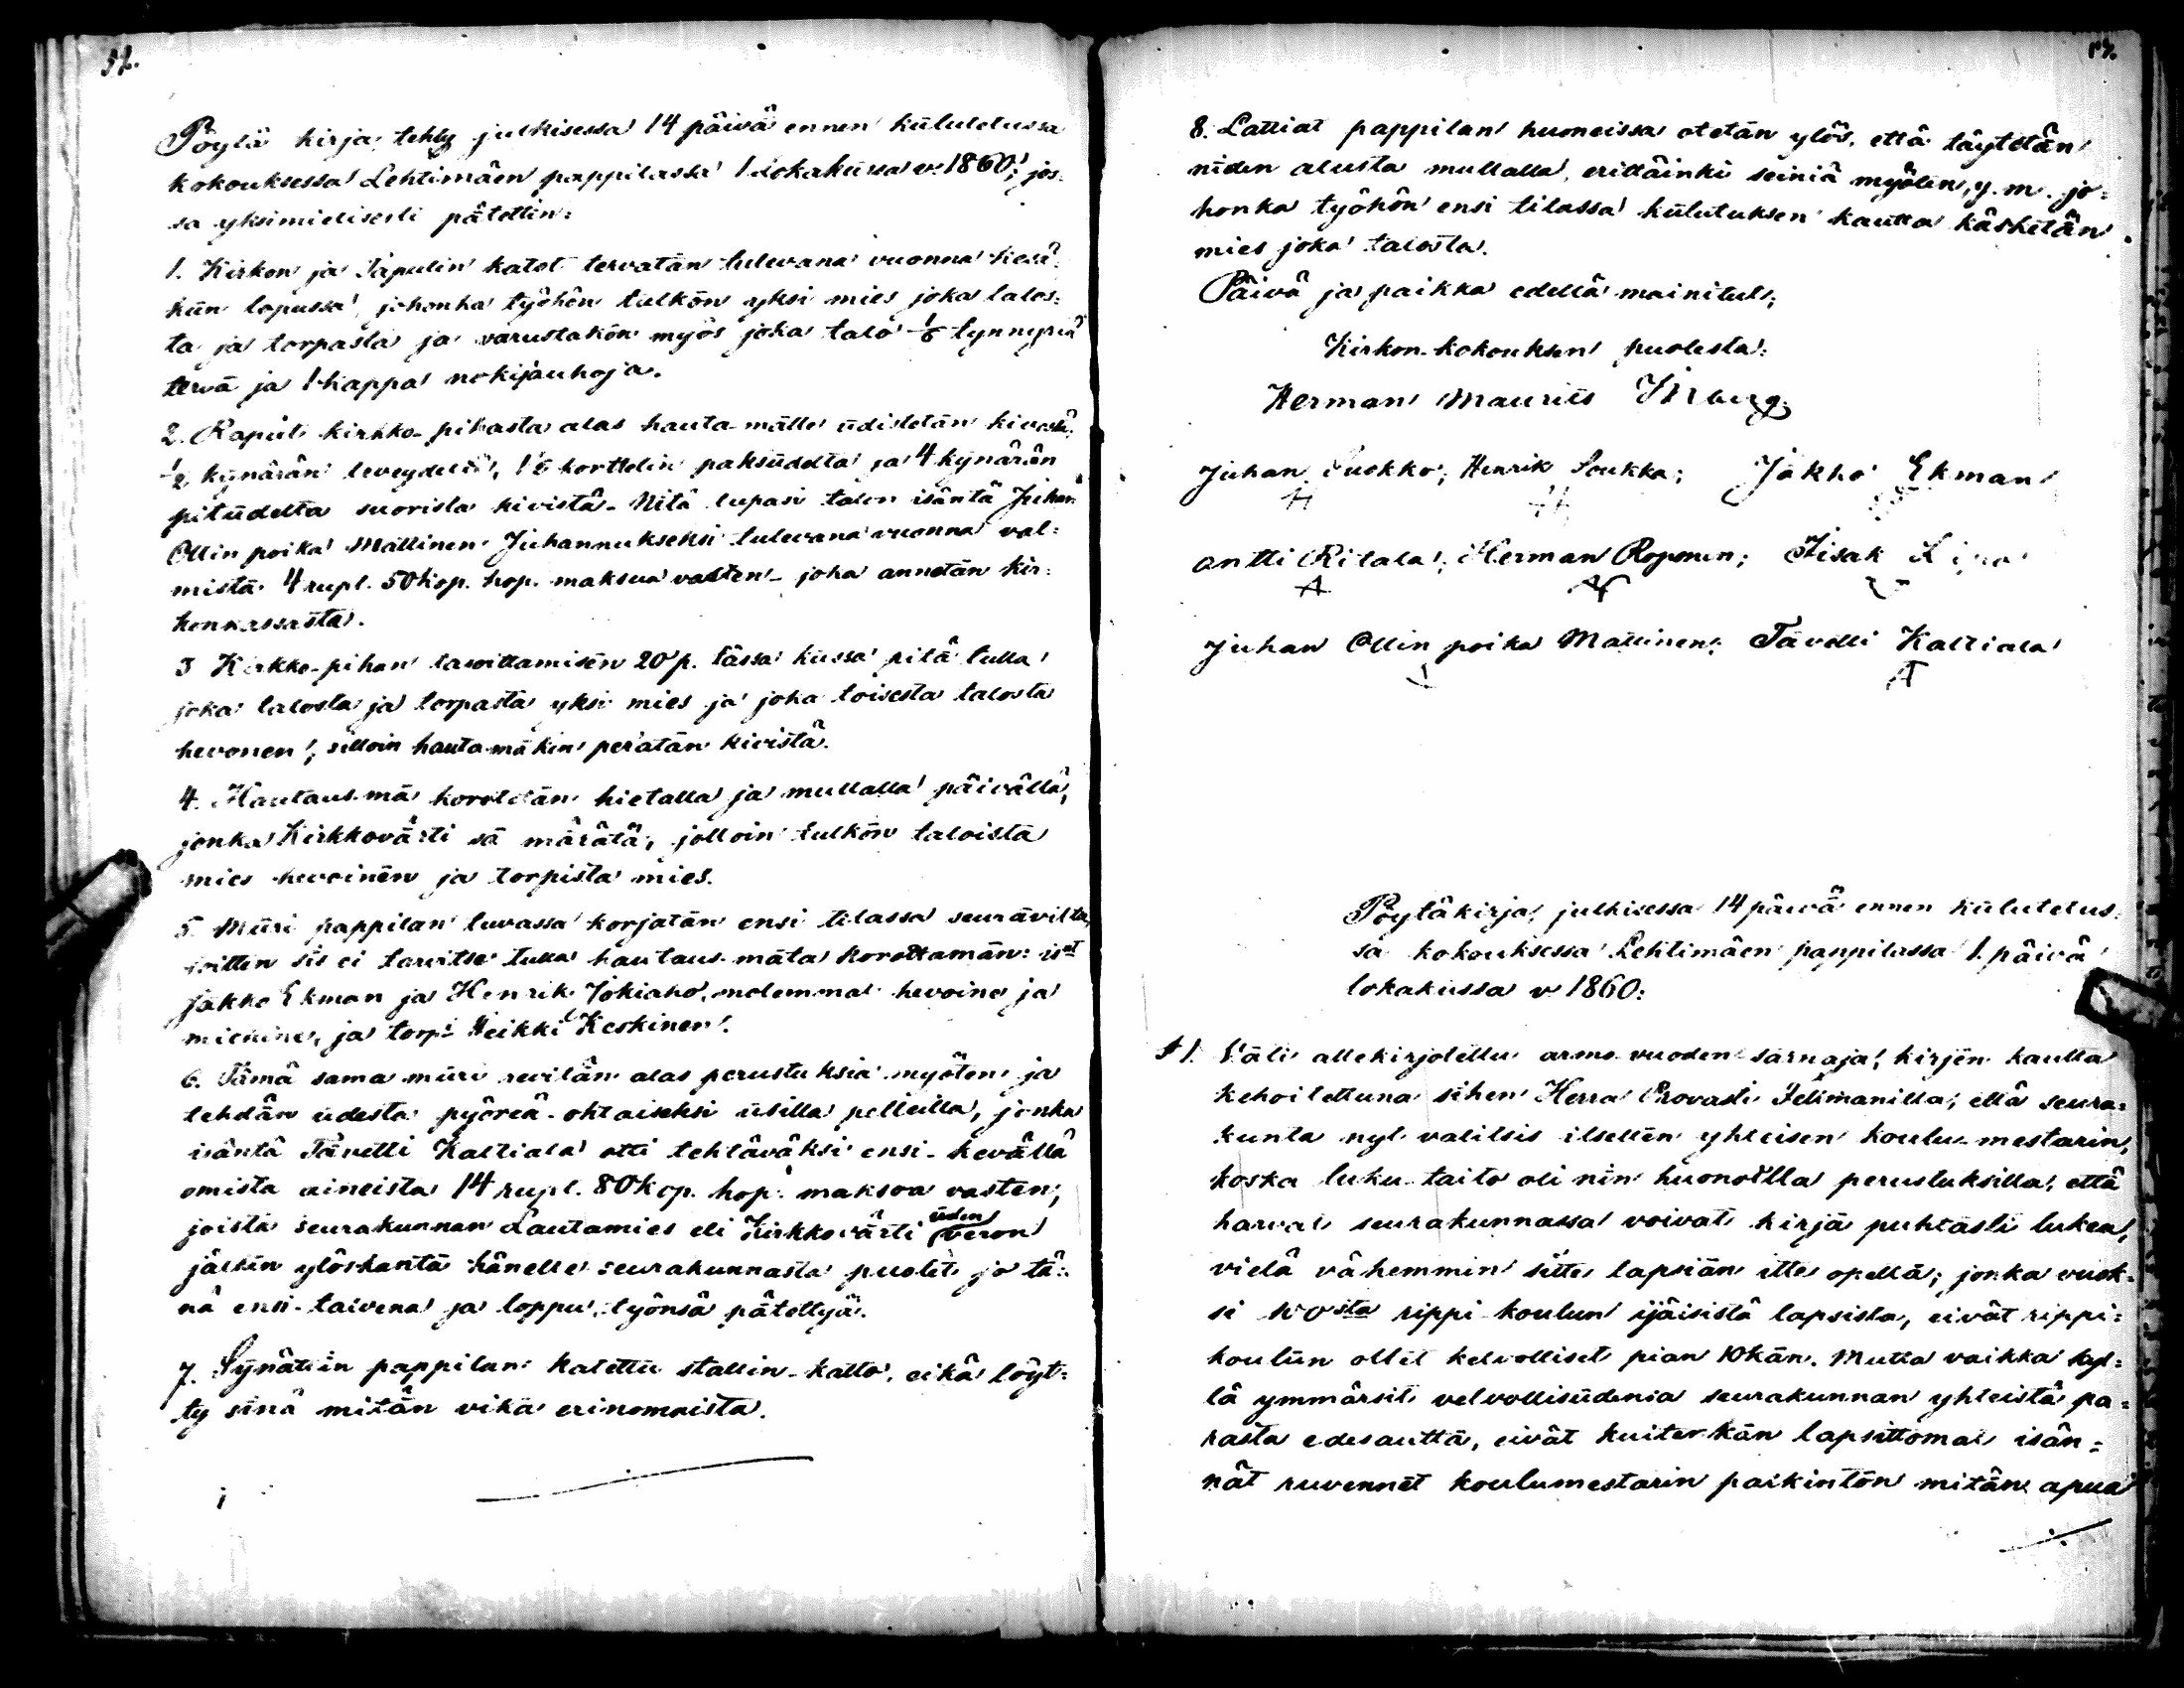 52.
Pöytä kirja, tehty julkisessa 14 päivä ennen kŭlutetussa
kokouksessa Lehtimäen pappilassa 1 lokakŭssa v. 1860; jos-
sa yksimielisesti pätettin:
1. Kirkon ja Tapulin katot tervatān tulevana vuonna kesä-
kŭn lopussa, johonka työhön tulkōn yksi mies joka talos-
ta ja torpasta ja varustakōn myös joka talo 1/6 tynnyriä
tervā ja 1 kappa nokijauhoja.
2. Raput kirkko-pihasta alas hauta-mälle ŭdistetān kivestä,
1/2 kynärän leveydeltä, 1 1/2 korttelin paksŭdelta ja 4 kynärän
pitŭdelta suorista kivistä. Nitä lupasi talon isäntä Juhan
Ollin poika Mattinen Juhannukseksi tulevana vuonna val-
mistā 4 rupl. 50 kop. hop. maksua vasten, joka annetān kir-
honkassasta.
3 Kirkko-pihan tasoittamisēn 20 p. tässä kŭssa pitä tulla
joka talosta ja torpasta yksi mies ja joka toisesta talosta
hevonen; silloin hauta-mäkin peratān kivistä.
4. Hautaus-mā korotetān hietalla ja mullalla päivällä,
jonka Kirkkovärti sā märätä, jolloin tulkōn taloista
mies hevoinēn ja torpista mies.
5. Mŭri pappilan tuvassa korjatān ensi tilassa seuraviltä,
joitten sis ei tarvitse tulla hautaus-māta korottamān: ist
Jakko Ekman ja Henrik Jokiaho, molemmat hevoine ja
miehine, ja torp. Heikki Keskinen.
6. Tämä sama mŭri revitān alas perustuksia myöten ja
tehdān ŭdesta pyöreä-ohtaiseksi ŭsilla pellillä, jonka
isäntä Tavetti Kaltiala otti tehtäväksi ensi-kevällä
omista aineista 14 rupl. 80 kop. hop. maksoa vasten,
joista seurakunnan Lautamies eli Kirkkovärti ŭden veron
jälkin ylöskantā hänelle seurakunnasta puolet jo tā-
nä ensi-talvena ja loppu, työnsä pätettyä.
7. Synättin pappilan katettu stallin-katto, eikä löyt-
ty sinä mitān vika erinomaista.
8. Lattiat pappilan huoneissa otetān ylös, että täytetān
niden alusta mullalla, erittäinki seiniä myöten, y. m. jo-
honka työhön ensi tilassa kŭlutuksen kautta käsketān
mies joka talosta.
Päivä ja paikka edellä mainitut;
Kirkon-kokouksen puolesta:
Herman Maurits
Juhan Suokko; Henrik Soukka; Jakko Ekman
Antti Ritala; Herman Roponen; Iisak
Juhan Ollin poika Mattinen; Tavetti Kaltiala
Pöytäkirja, julkisessa 14 päivä ennen kŭlutetus-
sa kokouksessa Lehtimäen pappilassa 1. päivä
lokakŭssa v 1860:
§ 1. Väli allekirjotettu armo-vuoden sarnaja, kirjēn kautta
kehoitettuna sihen Herra Provasti Telimanilta, että seura-
kunta nyt valitsis itsellēn yhteisen koulu-mestarin,
koska luku-taito oli nin huonoilla perustuksilla, että
harvat seurakunnassa voivat kirjā puhtāsti lukea,
vielä vähemmin sitte lapsiān itte opettā; jonka vuok-
si rippi-koulun ijäisistä lapsista, eivät rippi-
koulŭn ollet kelvolliset pian 10 kān. Mutta vaikka kyl-
lä ymmärsit velvollisŭdensa seurakunnan yhteistä pa-
rasta edesauttā, eivät kuitenkān lapsittomat isän-
nät ruvennēt koulumestarin palkintōn mitān apua